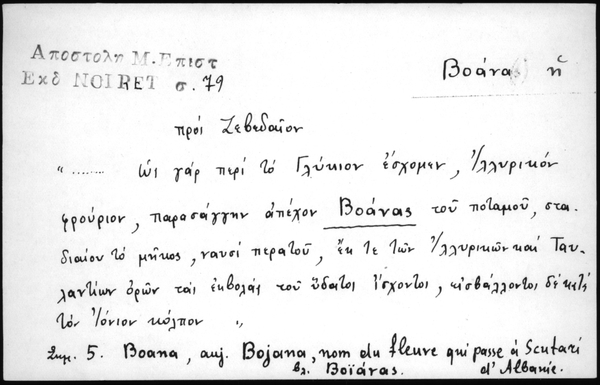 Αποστολη Μ. Επιστ
Εκδ NOIRET σ. 79
Βοάνας ἡ
πρὸς Ζεβεδαῖον
"........ Ὡς γάρ περὶ τὸ Γλύκιον ἔσχομεν, Ἰλλυρικόν
φρούριον, παρασάγγην ἀπέχον Βοάνας τοῦ ποταμοῦ, στα-
διαίου τὸ μῆκος, ναυσὶ περατοῦ, ἔκ τε τῶν Ἰλλυρικῶν καὶ Ταυ-
λαντίων ὁρῶν τὰς ἐκβολάς τοῦ ὕδατος ἴσχοντος, εἰσβάλλοντος δὲ
τὸν Ἰόνιον κόλπον "
Σημ. 5. Boana, auj. Bojana, nom du fleuve qui passe à Scutari
βλ. Βοϊάνας. d'Albanie.